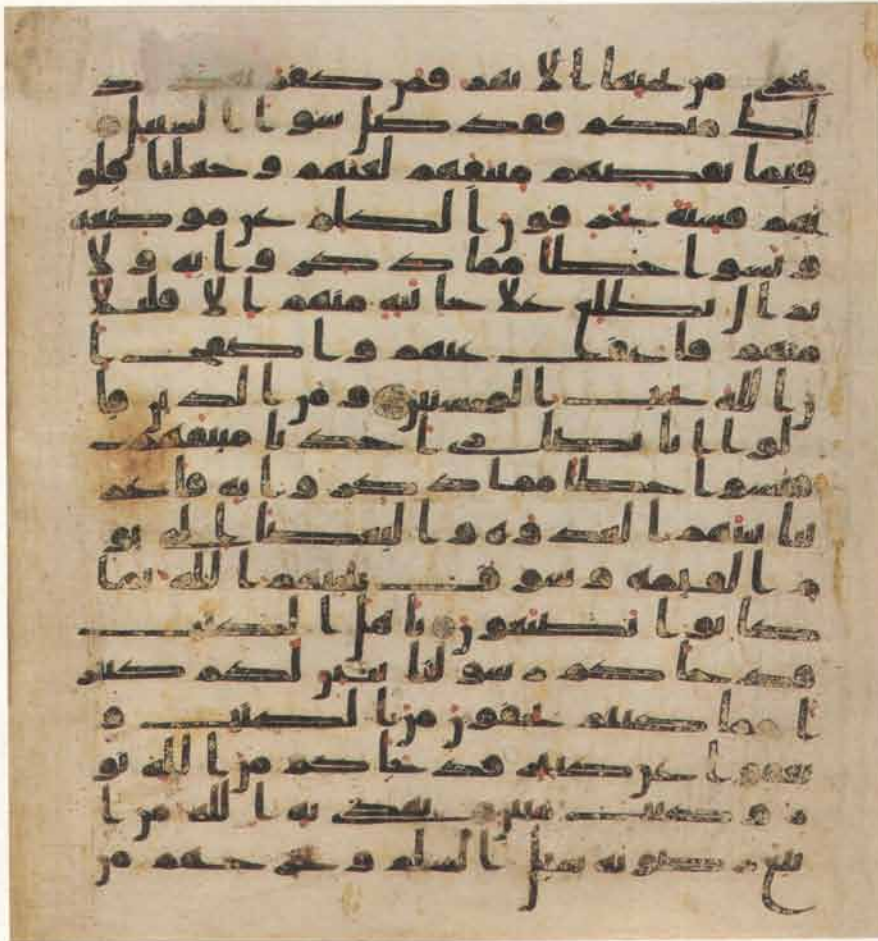 تجري من تحتها الانهر فمن كفر بعد ذ
لك منكم فقد ضل سوا السبيل
فبما نقضهم ميثقهم لعنهم وجعلنا قلو
بهم قسية يحرفون الكلم عن موضعه
ونسوا حظا مما ذكروا به ولا
تزال تطلع علا خاينة منهم الا قليلا
منهم فاعف عنهم واصفح ا
ن الله يحب المحسنين ومن الذين قا
لوا انا نصرى اخذنا ميثقهم
فنسوا حظا مما ذكروا به فاغر
ينا بينهم العدوة والبغضا الى يو
م القيمة وسوف ينبيهم الله بما
كانوا يصنعون ياهل الكتب
قد جاكم رسولنا يبين لكم كثير
ا مما كنتم تخفون من الكتب و
يعفوا عن كثير قد جاكم من الله نو
ر وكتب مبين يهدي به الله من ا
تبع رضونه سبل السلم ويخرجهم من